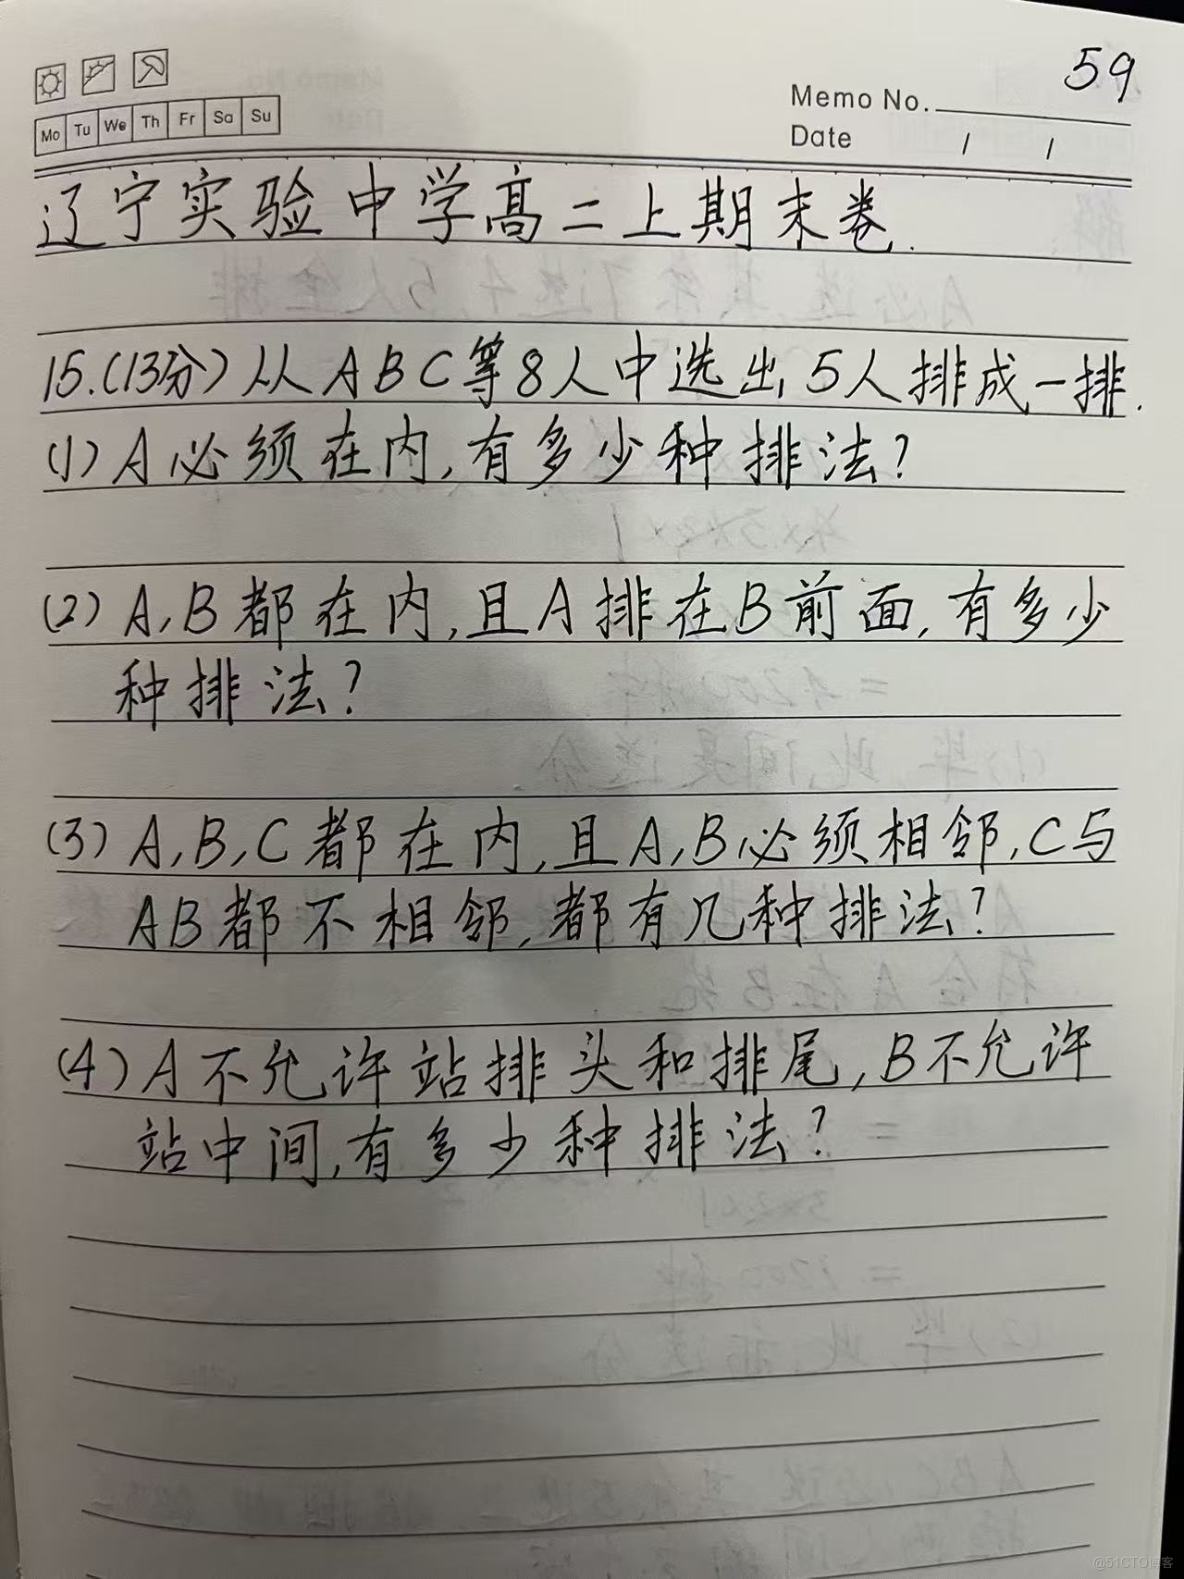 59
Memo No.
Mo Tu We Th Fr Sa Su
Date / /
辽宁实验中学高二上期末卷.
15.(13分)从ABC等8人中选出5人排成一排.
(1)A必须在内,有多少种排法?
(2)A,B都在内,且A排在B前面,有多少
种排法?
(3)A,B,C都在内,且A,B必须相邻,C与
AB都不相邻,都有几种排法?
(4)A不允许站排头和排尾,B不允许
站中间,有多少种排法?
@51CTO博客